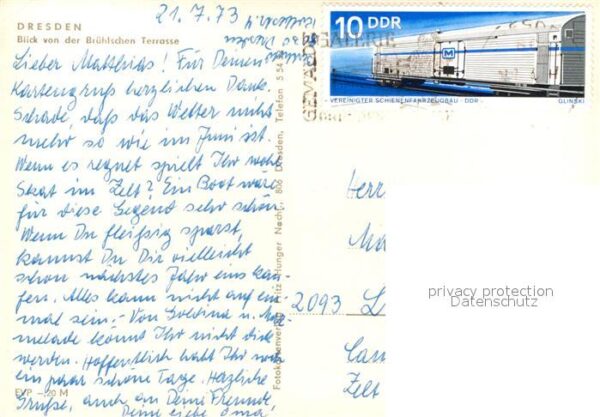 21. 7. 73
DRESDEN
Blick von der Brühlschen Terrasse
Lieber Matthias! Für Deinen
Kartengruß herzlichen Dank.
Schade, daß das Wetter nicht
mehr so wie im Juni ist.
Wenn es regnet spielt Ihr wohl
Skat im Zelt? Ein Boot wäre
für diese Gegend sehr schön.
Wenn Du fleißig sparst,
kannst Du Dir vielleicht
schon nächstes Jahr eins kau-
fen. Alles kann nicht auf ein-
mal sein. - Von Soldina u. Mar-
melade könnt Ihr nicht dick
werden. Hoffentlich habt Ihr noch
ein paar schöne Tage. Herzliche
Grüße, auch an Deine Freunde,
Deine liebe Oma.
EVP -,20 M
Fotokartenverlag Fritz Hunger Nachf., 806 Dresden, Telefon 5 54
10 DDR
M
VEREINIGTER SCHIENENFAHRZEUGBAU · DDR
GLINSKI
GEMÄLDE
GALERIE
Herr
Ma
2093 L
Cam
Zelt
privacy protection
Datenschutz